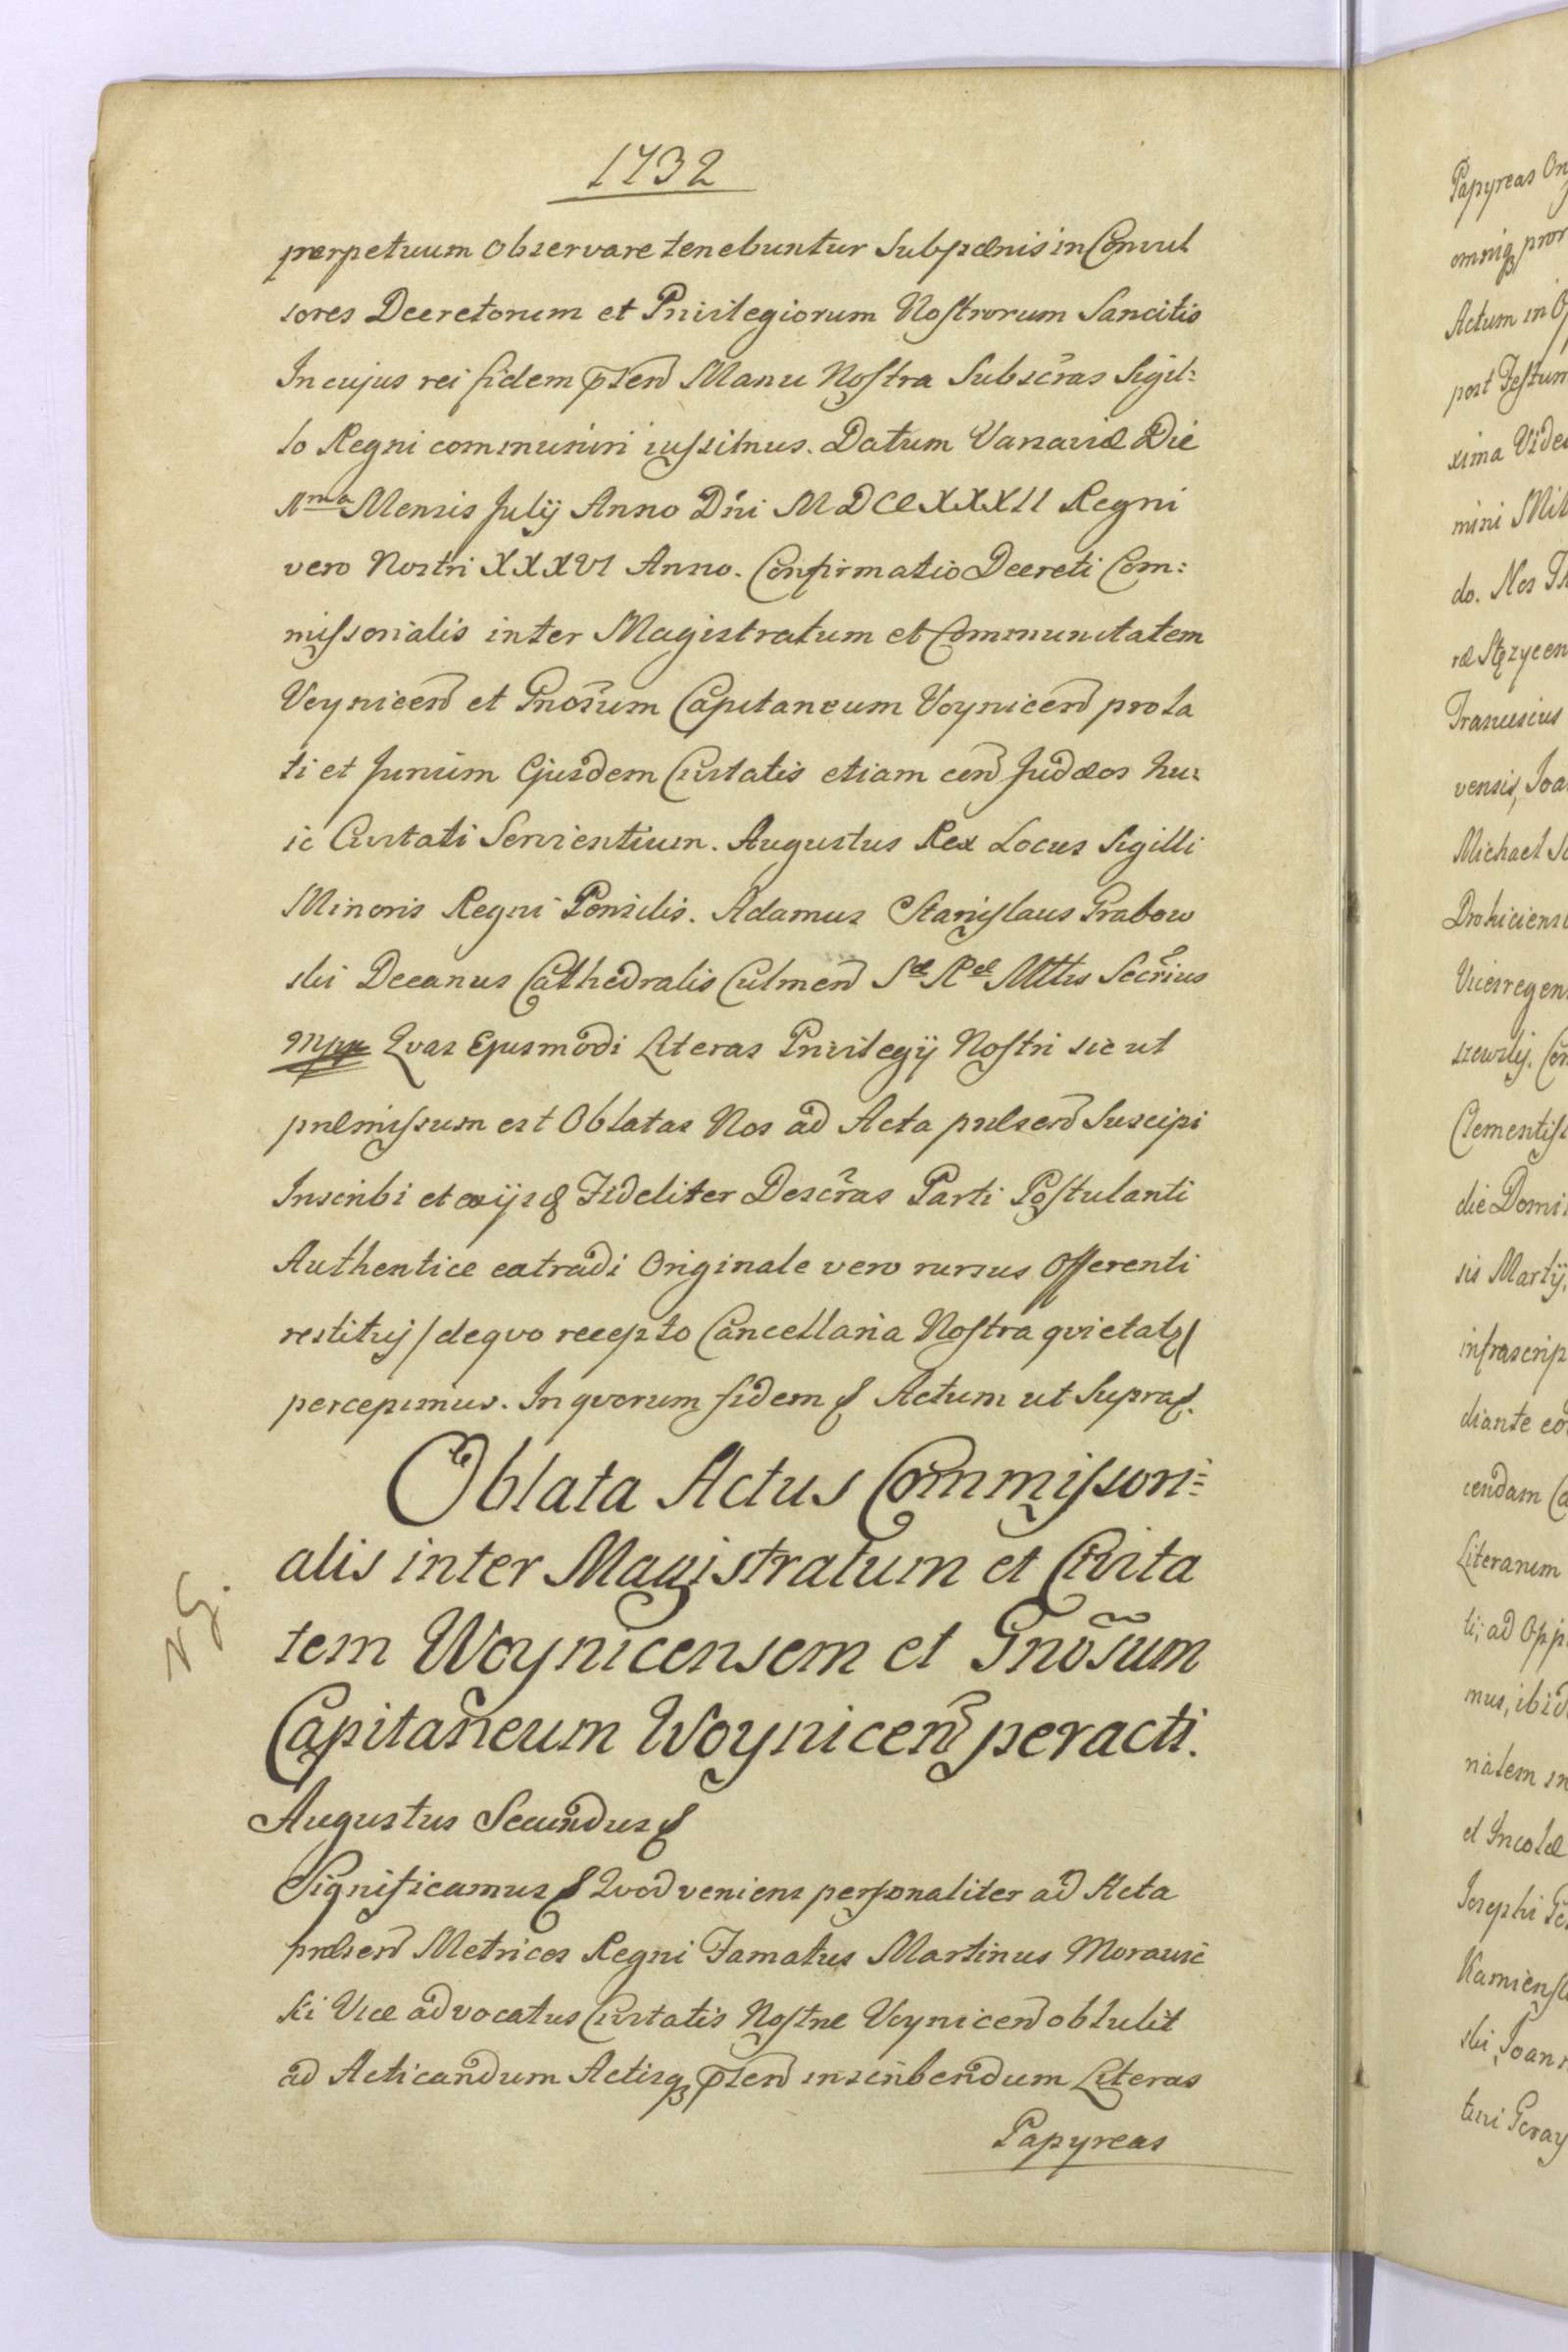 1732
perpetuum observare tenebuntur sub pænis in Convul
sores Decretorum et Privilegiorum Nostrorum Sancitis
In cujus rei fidem pñten Manu Nostra Subscras Sigil:
lo Regni communiri iussimus. Datum Varsaviæ Die
Mensis Julij Anno Dñi MDCCXXXII Regni
vero Nostri XXXVI Anno. Confirmatio Decreti Com:
missorialis inter Magistratum et Communitatem
Voynicen et Gnosum Capitaneum Voynicen prola
ti et Jurium Ejusdem Civitatis etiam cen Judæos hu:
ic Civitati Servientium. Augustus Rex Locus Sigilli
Minoris Regni Pensilis. Adamus Stanislaus Grabow
ski Decanus Cathedralis Culmen Sæ Ræ Mttis Secrius
mpp Qvas Ejusmodi Literas Privilegij Nostri sic ut
præmissum est Oblatas Nos ad Acta præsen Suscipi
Inscribi et exijsq Fideliter Descras Parti Postulanti
Authentice extradi Originale vero rursus Offerenti
restituj / de qvo recepto Cancellaria Nostra qvietat /
percepimus. In qvorum fidem & Actum ut Supra &.
Oblata Actus Commissori:
alis inter Magistratum et Civita
tem Woynicensem et Gnosum
Capitaneum Woynicen peracti.
Augustus Secundus &
Significamus & Qvod veniens personaliter ad Acta
præsen Metrices Regni Famatus Martinus Morawic
ki Vice advocatus Civitatis Nostræ Voynicen obtulit
ad Acticandum Actisq pñten inscribendum Literas
Papyreas
Papyreas
omniq
Actum in
post Festum
xima
mini
do. Nos
ræ Stęzycen
vensis,
Michael
szewskj.
die
sis Martij.
diante
cendam
Literarum
ti; ad
mus,
et Incolæ
Josephi
ski,